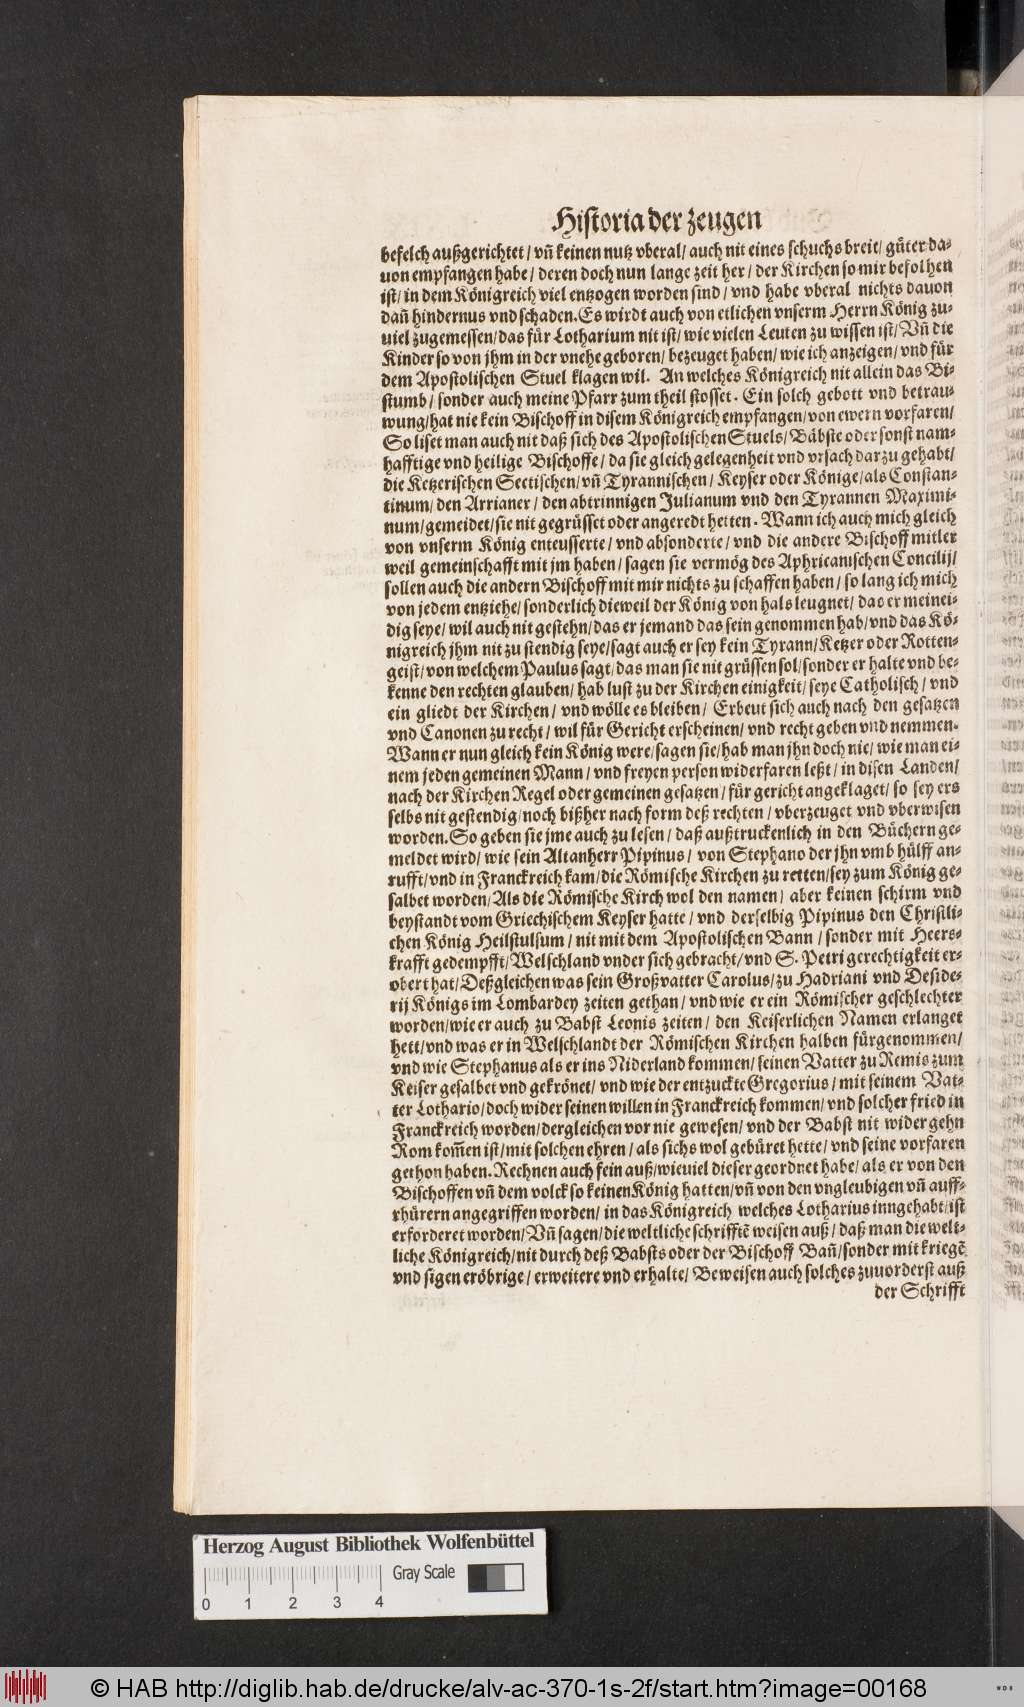 Historia der zeugen
befelch außgerichtet / vñ keinen nutz vberal / auch nit eines schuchs breit / gůter da-
uon empfangen habe / deren doch nun lange zeit her / der Kirchen so mir befolhen
ist / in dem Königreich viel entzogen worden sind / vnd habe vberal nichts dauon
dañ hindernus vnd schaden. Es wirdt auch von etlichen vnserm Herrn König zu-
uiel zugemessen / das für Lotharium nit ist / wie vielen Leuten zu wissen ist / Vñ die
Kinder so von jhm in der vnehe geboren / bezeuget haben / wie ich anzeigen / vnd für
dem Apostolischen Stuel klagen wil. An welches Königreich nit allein das Bi-
stumb / sonder auch meine Pfarr zum theil stosset. Ein solch gebott vnd betrau-
wung / hat nie kein Bischoff in disem Königreich empfangen / von ewern vorfaren /
So liset man auch nit daß sich des Apostolischen Stuels / Bäbste oder sonst nam-
hafftige vnd heilige Bischoffe / da sie gleich gelegenheit vnd vrsach darzu gehabt /
die Ketzerischen Sectischen / vñ Tyrannischen / Keyser oder Könige / als Constan-
tinum / den Arrianer / den abtrinnigen Julianum vnd den Tyrannen Maximi-
num / gemeidet / sie nit gegrüsset oder angeredt hetten. Wann ich auch mich gleich
von vnserm König enteusserte / vnd absonderte / vnd die andere Bischoff mitler
weil gemeinschafft mit jm haben / sagen sie vermög des Aphricanischen Concilij /
sollen auch die andern Bischoff mit mir nichts zu schaffen haben / so lang ich mich
von jedem entziehe / sonderlich dieweil der König von hals leugnet / das er meinei-
dig seye / wil auch nit gestehn / das er jemand das sein genommen hab / vnd das Kö-
nigreich jhm nit zustendig seye / sagt auch er sey kein Tyrann / Ketzer oder Rotten-
geist / von welchem Paulus sagt / das man sie nit grüssen sol / sonder er halte vnd be-
kenne den rechten glauben / hab lust zu der Kirchen einigkeit / seye Catholisch / vnd
ein gliedt der Kirchen / vnd wölle es bleiben / Erbeut sich auch nach den gesatzen
vnd Canonen zu recht / wil für Gericht erscheinen / vnd recht geben vnd nemmen.
Wann er nun gleich kein König were / sagen sie / hab man jhn doch nie / wie man ei-
nem jeden gemeinen Mann / vnd freyen person widerfaren leßt / in disen Landen /
nach der Kirchen Regel oder gemeinen gesatzen / für gericht angeklaget / so sey ers
selbs nit gestendig / noch bißher nach form deß rechten / vberzeuget vnd vberwisen
worden. So geben sie jme auch zu lesen / daß außtruckenlich in den Büchern ge-
meldet wird / wie sein Altanherr Pipinus / von Stephano der jhn vmb hülff an-
rufft / vnd in Franckreich kam / die Römische Kirchen zu retten / sey zum König ge-
salbet worden / Als die Römische Kirch wol den namen / aber keinen schirm vnd
beystandt vom Griechischem Keyser hatte / vnd derselbig Pipinus den Christli-
chen König Heilstulsum / nit mit dem Apostolischen Bann / sonder mit Heers-
krafft gedempfft / Welschland vnder sich gebracht / vnd S. Petri gerechtigkeit er-
obert hat / Deßgleichen was sein Großvatter Carolus / zu Hadriani vnd Deside-
rij Königs im Lombardey zeiten gethan / vnd wie er ein Römischer geschlechter
worden / wie er auch zu Babst Leonis zeiten / den Keiserlichen Namen erlanget
hett / vnd was er in Welschlandt der Römischen Kirchen halben fürgenommen /
vnd wie Stephanus als er ins Niderland kommen / seinen Vatter zu Remis zum
Keiser gesalbet vnd gekrönet / vnd wie der entzuckte Gregorius / mit seinem Vat-
ter Lothario / doch wider seinen willen in Franckreich kommen / vnd solcher fried in
Franckreich worden / dergleichen vor nie gewesen / vnd der Babst nit wider gehn
Rom kom̃en ist / mit solchen ehren / als sichs wol gebüret hette / vnd seine vorfaren
gethon haben. Rechnen auch fein auß / wieuiel dieser geordnet habe / als er von den
Bischoffen vñ dem volck so keinen König hatten / vñ von den vngleubigen vñ auff-
rhürern angegriffen worden / in das Königreich welches Lotharius inngehabt / ist
erforderet worden / Vñ sagen / die weltliche schrifftẽ weisen auß / daß man die welt-
liche Königreich / nit durch deß Babsts oder der Bischoff Bañ / sonder mit kriegẽ
vnd sigen eröbrige / erweitere vnd erhalte / Beweisen auch solches zuuorderst auß
der Schrifft
Herzog August Bibliothek Wolfenbüttel
Gray Scale
0 1 2 3 4
© HAB http://diglib.hab.de/drucke/alv-ac-370-1s-2f/start.htm?image=00168